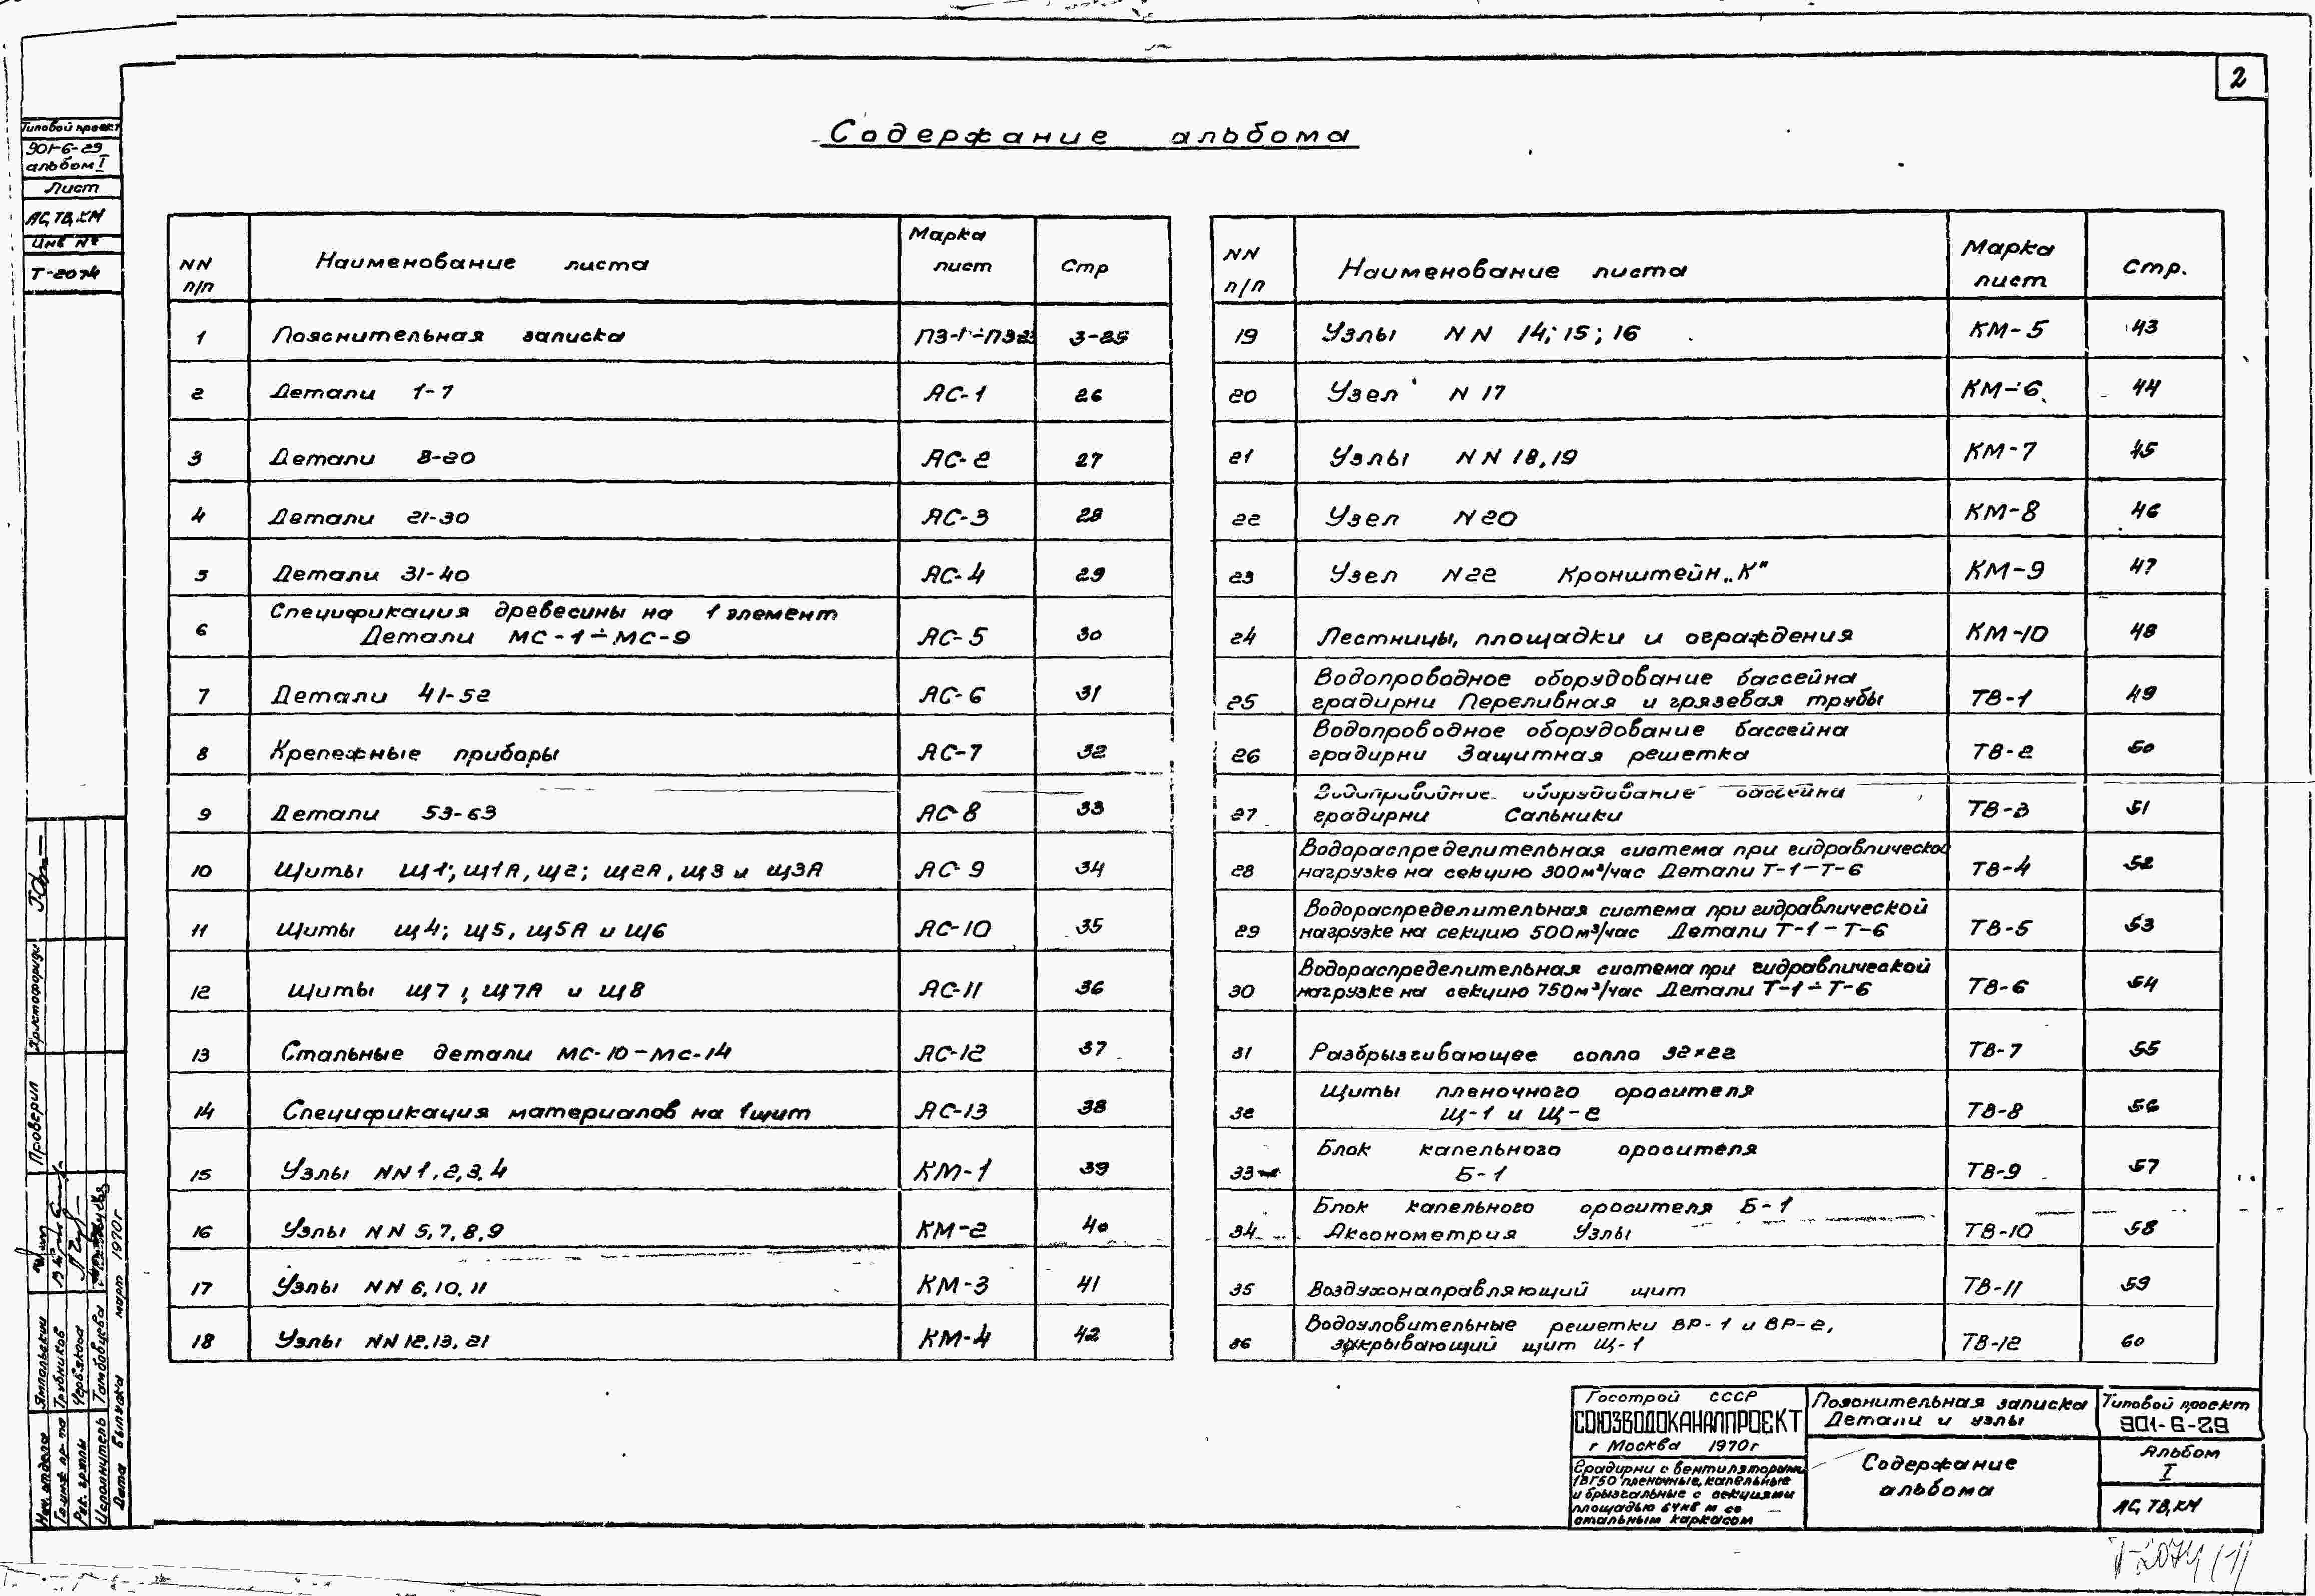 2
Содержание альбома
Типовой проект
901-6-29
альбом I
Лист
АС, ТВ, КМ
Инв №
Т-2074
NN п/п Наименование листа Марка лист Стр
1 Пояснительная записка ПЗ-1÷ПЗ-23 3-25
2 Детали 1-7 АС-1 26
3 Детали 8-20 АС-2 27
4 Детали 21-30 АС-3 28
5 Детали 31-40 АС-4 29
Спецификация древесины на 1 элемент
6 Детали МС-1÷МС-9 АС-5 30
7 Детали 41-52 АС-6 31
8 Крепежные приборы АС-7 32
9 Детали 53-63 АС-8 33
10 Щиты Щ1; Щ1А, Щ2; Щ2А, Щ3 и Щ3А АС-9 34
11 Щиты Щ4; Щ5, Щ5А и Щ6 АС-10 35
12 Щиты Щ7, Щ7А и Щ8 АС-11 36
13 Стальные детали МС-10-МС-14 АС-12 37
14 Спецификация материалов на 1 щит АС-13 38
15 Узлы NN 1, 2, 3, 4 КМ-1 39
16 Узлы NN 5, 7, 8, 9 КМ-2 40
17 Узлы NN 6, 10, 11 КМ-3 41
18 Узлы NN 12, 13, 21 КМ-4 42
NN п/п Наименование листа Марка лист Стр.
19 Узлы NN 14; 15; 16 КМ-5 43
20 Узел N 17 КМ-6 44
21 Узлы NN 18, 19 КМ-7 45
22 Узел N 20 КМ-8 46
23 Узел N 22 Кронштейн „К" КМ-9 47
24 Лестницы, площадки и ограждения КМ-10 48
Водопроводное оборудование бассейна
25 градирни Переливная и грязевая трубы ТВ-1 49
Водопроводное оборудование бассейна
26 градирни Защитная решетка ТВ-2 50
Водопроводное оборудование бассейна
27 градирни Сальники ТВ-3 51
Водораспределительная система при гидравлической
28 нагрузке на секцию 300 м³/час Детали Т-1-Т-6 ТВ-4 52
Водораспределительная система при гидравлической
29 нагрузке на секцию 500 м³/час Детали Т-1-Т-6 ТВ-5 53
Водораспределительная система при гидравлической
30 нагрузке на секцию 750 м³/час Детали Т-1÷Т-6 ТВ-6 54
31 Разбрызгивающее сопло 32×22 ТВ-7 55
Щиты пленочного оросителя
32 Щ-1 и Щ-2 ТВ-8 56
Блок капельного оросителя
33 Б-1 ТВ-9 57
Блок капельного оросителя Б-1
34 Аксонометрия Узлы ТВ-10 58
35 Воздухонаправляющий щит ТВ-11 59
Водоуловительные решетки ВР-1 и ВР-2,
36 закрывающий щит Щ-1 ТВ-12 60
Проверил
Нач. отдела Ямпольский
Гл. инж. пр-та Трубников
Рук. группы Червякова
Исполнитель Тамбовцева
Дата выпуска март 1970г
Госстрой СССР
СОЮЗВОДОКАНАЛПРОЕКТ
г Москва 1970г
Градирни с вентиляторами
1ВГ50 пленочные, капельные
и брызгальные с секциями
площадью 64кв м со
стальным каркасом
Пояснительная записка
Детали и узлы
Содержание
альбома
Типовой проект
901-6-29
Альбом
I
АС, ТВ, КМ
Т-2074 (1)